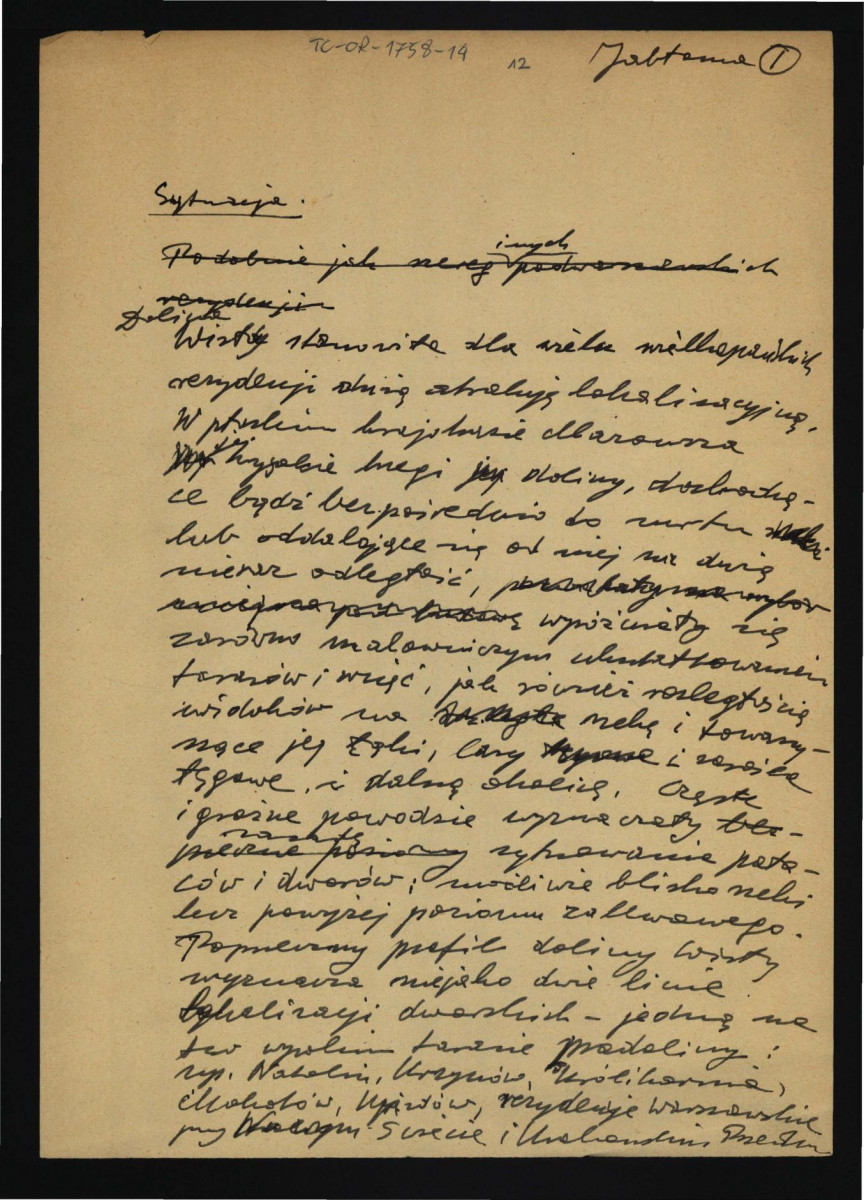 TC-OR-1758-14
12
Jabłonna ①
Sytuacja.
innych
Podobnie jak szereg podwarszawskich
rezydencji
Dolina
Wisły stanowiła dla wielu wielkopańskich
rezydencji dużą atrakcję lokalizacyjną.
W płaskim krajobrazie Mazowsza
jej wysokie brzegi doliny, dochodzą-
ce bądź bezpośrednio do nurtu
lub oddalające się od niej na dużą
nieraz odległość,
wyróżniały się
zarówno malowniczym ukształtowaniem
tarasów i wzgórz, jak również rozległością
widoków na rzekę i towarzy-
szące jej łąki, lasy i zarośla
łęgowe, i dalszą okolicę. Częste
i groźne powodzie wyznaczały bez-
zasadę
pieczne poziomy sytuowania pała-
ców i dworów; możliwie blisko rzeki
lecz powyżej poziomu zalewowego.
Poprzeczny profil doliny Wisły
wyznacza niejako dwie linie
lokalizacji dworskich – jedną na
tzw wysokim tarasie pradoliny:
np. Natolin, Ursynów, Królikarnia,
Mokotów, Ujazdów, rezydencje warszawskie
przy Nowym Świecie i Krakowskim Przedm